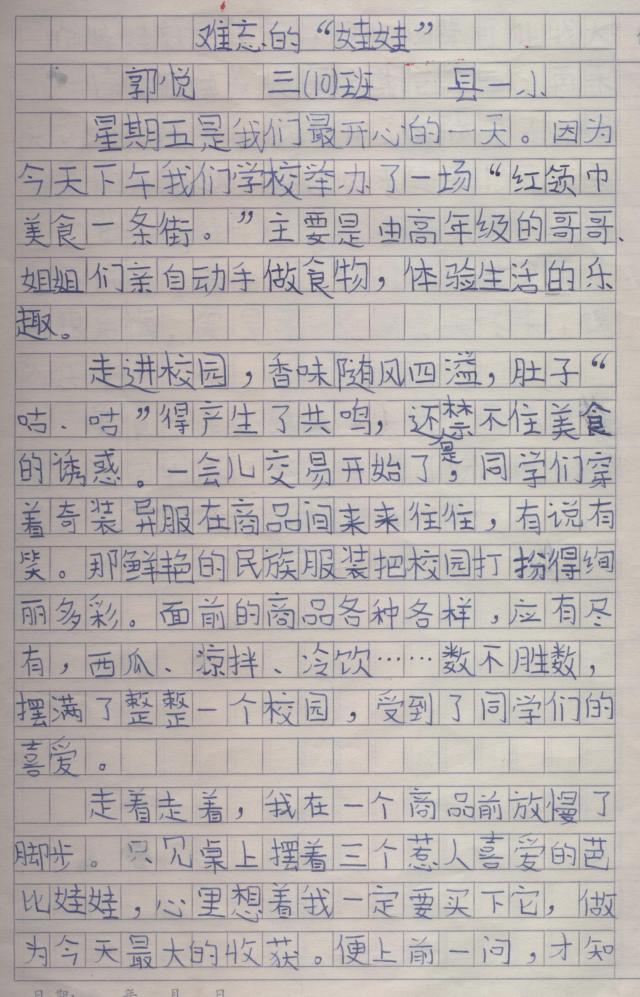 难忘的“娃娃”
郭悦 三(10)班 县一小
星期五是我们最开心的一天。因为
今天下午我们学校举办了一场“红领巾
美食一条街。”主要是由高年级的哥哥、
姐姐们亲自动手做食物，体验生活的乐
趣。
走进校园，香味随风四溢，肚子“
咕、咕”得产生了共鸣，还是禁不住美食
的诱惑。一会儿交易开始了，同学们穿
着奇装异服在商品间来来往往，有说有
笑。那鲜艳的民族服装把校园打扮得绚
丽多彩。面前的商品各种各样，应有尽
有，西瓜、凉拌、冷饮……数不胜数，
摆满了整整一个校园，受到了同学们的
喜爱。
走着走着，我在一个商品前放慢了
脚步。只见桌上摆着三个惹人喜爱的芭
比娃娃，心里想着我一定要买下它，做
为今天最大的收获。便上前一问，才知
日期: 年 月 日